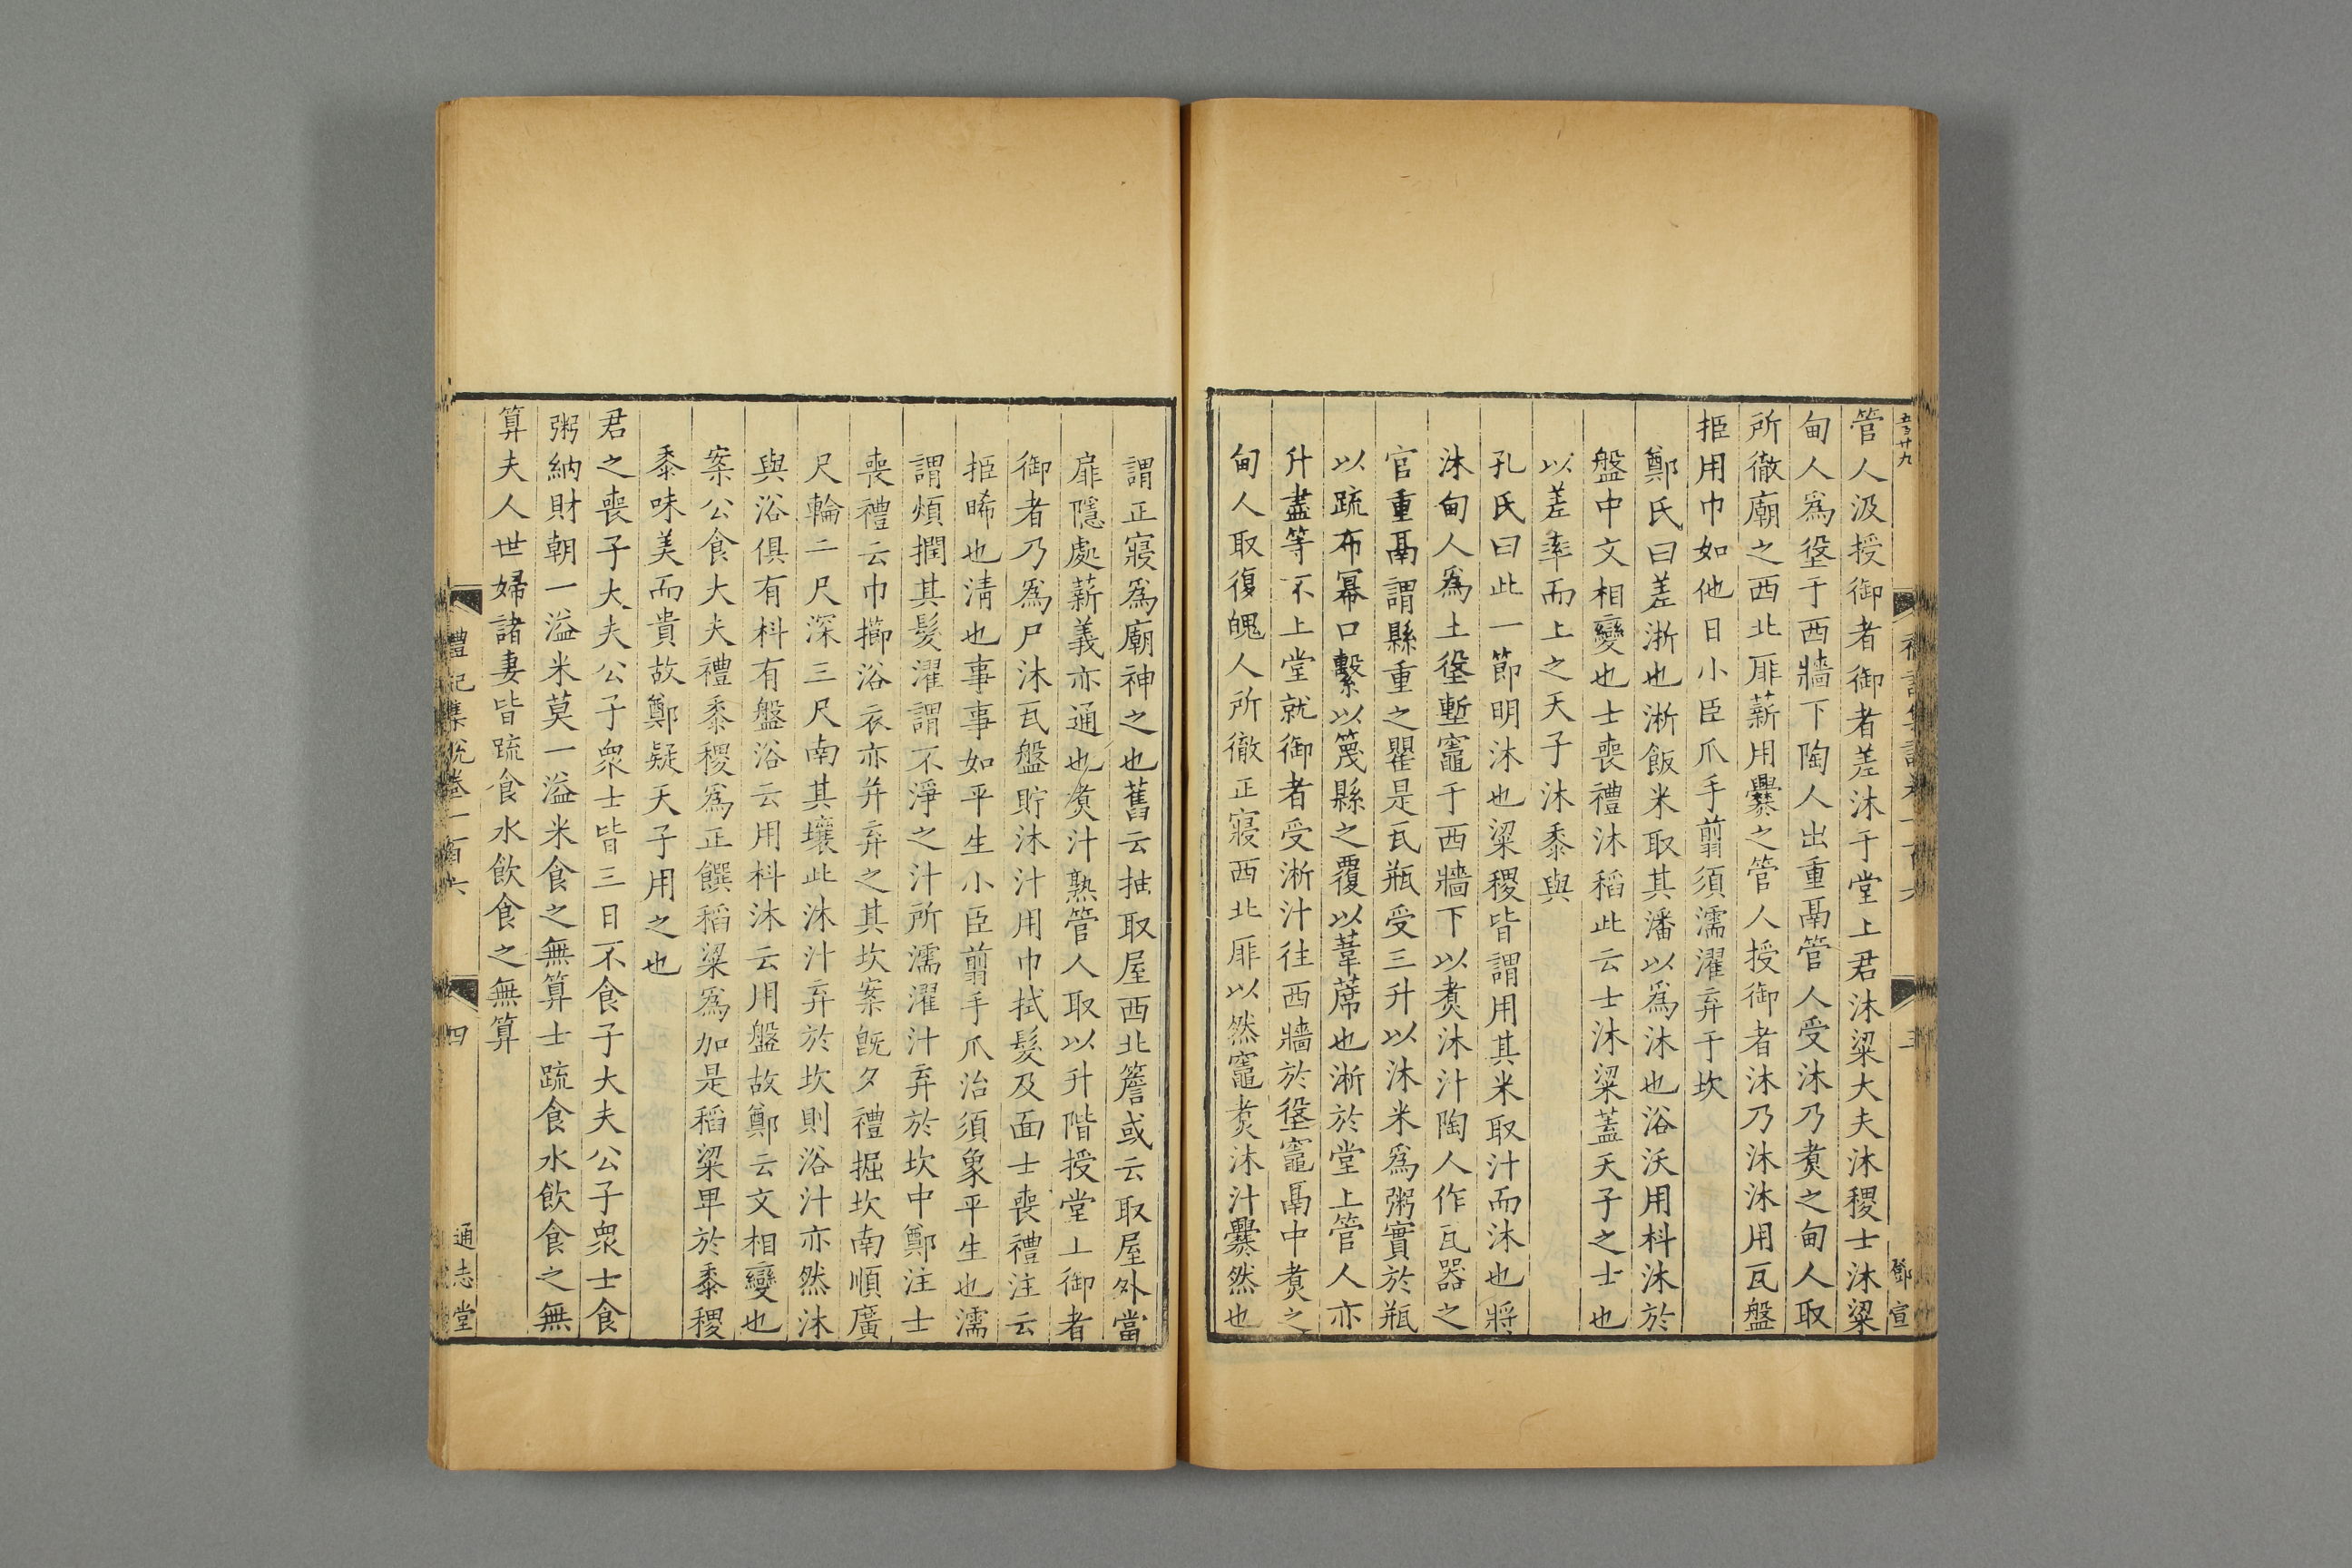 管人汲授御者御者差沐于堂上君沐粱大夫沐稷士沐粱
甸人爲垼于西牆下陶人出重鬲管人受沐乃煑之甸人取
所徹廟之西北厞薪用爨之管人授御者沐乃沐沐用瓦盤
挋用巾如他日小臣爪手翦須濡濯弃于坎
鄭氏曰差淅也淅飯米取其潘以爲沐也浴沃用枓沐於
盤中文相變也士喪禮沐稻此云士沐粱蓋天子之士也
以差率而上之天子沐黍與
孔氏曰此一節明沐也粱稷皆謂用其米取汁而沐也將
沐甸人爲土垼塹竈于西牆下以煑沐汁陶人作瓦器之
官重鬲謂縣重之瞿是瓦瓶受三升以沐米爲粥實於瓶
以疏布冪口繫以篾縣之覆以葦蓆也淅於堂上管人亦
升盡等不上堂就御者受淅汁往西牆於垼竈鬲中煑之
甸人取復魄人所徹正寢西北厞以然竈煑沐汁爨然也
謂正寢爲廟神之也舊云抽取屋西北簷或云取屋外當
厞隱處薪義亦通也煑汁熟管人取以升階授堂上御者
御者乃爲尸沐瓦盤貯沐汁用巾拭髮及面士喪禮注云
挋晞也清也事事如平生小臣翦手爪治須象平生也濡
謂煩撋其髮濯謂不淨之汁所濡濯汁弃於坎中鄭注士
喪禮云巾櫛浴衣亦并弃之其坎案旣夕禮掘坎南順廣
尺輪二尺深三尺南其壤此沐汁弃於坎則浴汁亦然沐
與浴俱有枓有盤浴云用枓沐云用盤故鄭云文相變也
案公食大夫禮黍稷爲正饌稻粱爲加是稻粱卑於黍稷
黍味美而貴故鄭疑天子用之也
君之喪子大夫公子衆士皆三日不食子大夫公子衆士食
粥納財朝一溢米莫一溢米食之無算士疏食水飲食之無
算夫人世婦諸妻皆疏食水飲食之無算
禮記集説卷一百六
四
通志堂
鄧宣